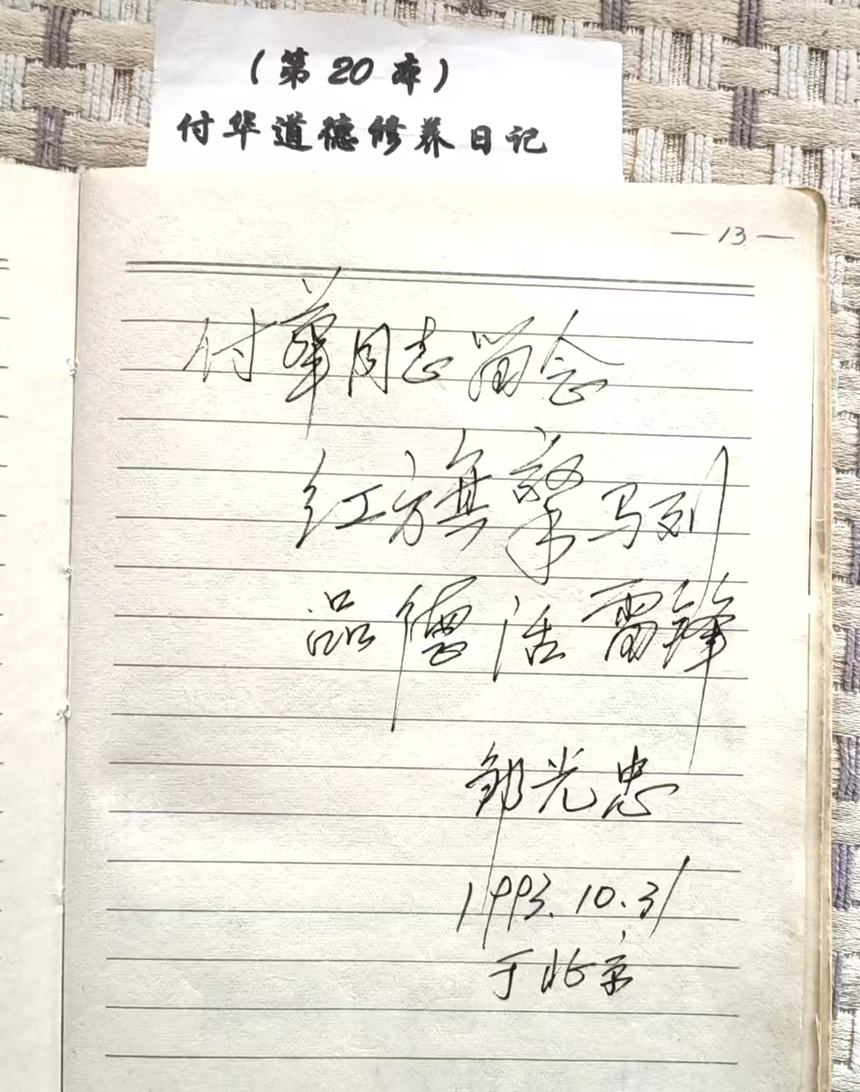 （第20本）
付华道德修养日记
—13—
付华同志留念
红旗擎马列
品德活雷锋
邹光忠
1993.10.31
于北京